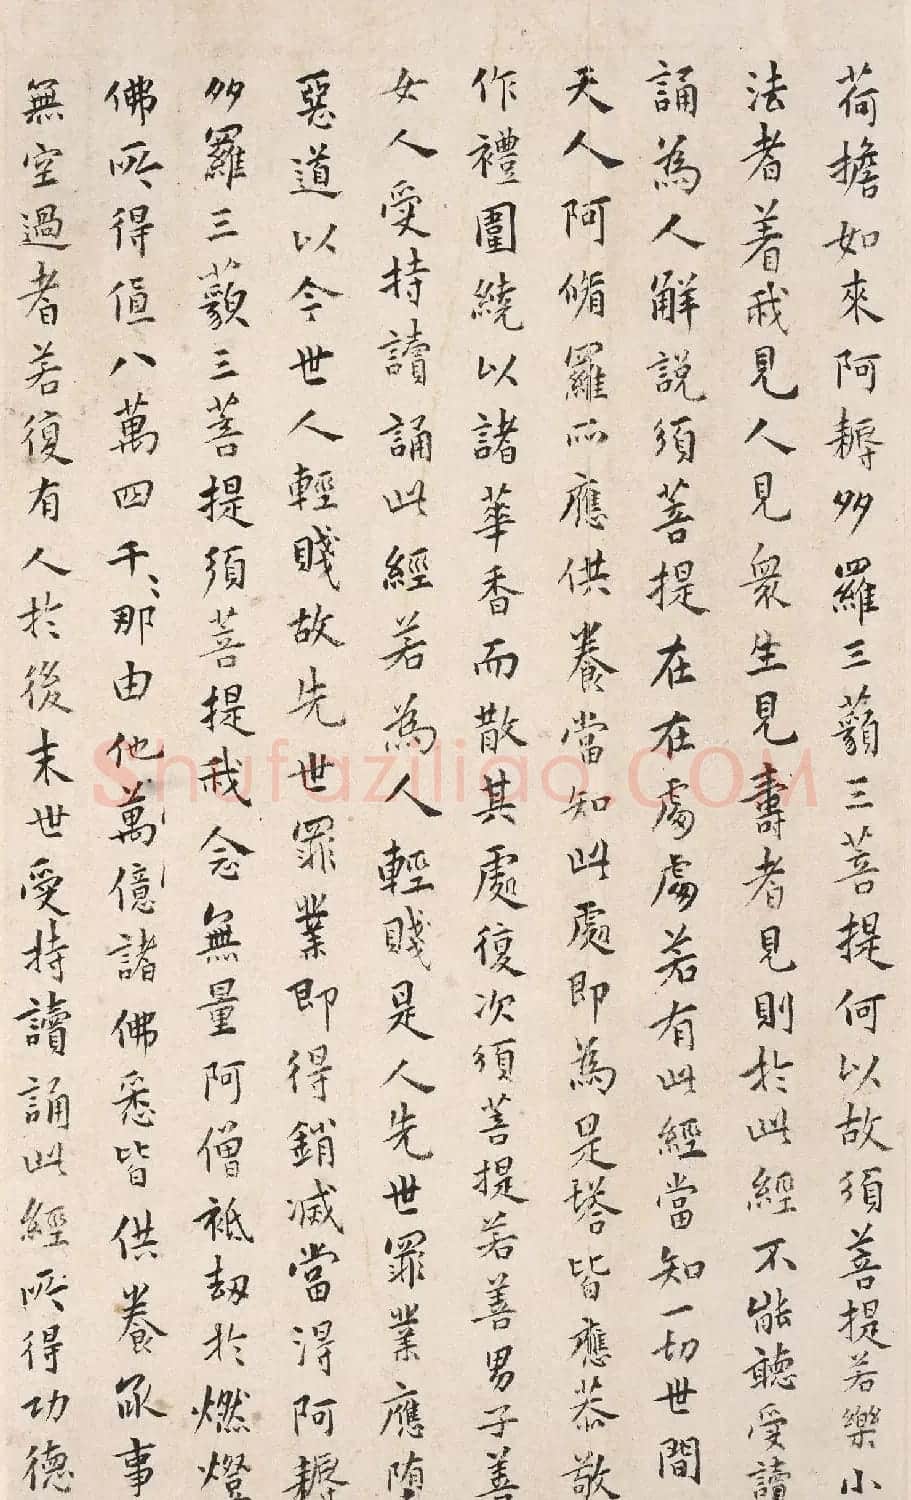 荷擔如來阿耨多羅三藐三菩提何以故須菩提若樂小
法者着我見人見衆生見壽者見則於此經不能聽受讀
誦為人解説須菩提在在處處若有此經當知一切世間
天人阿脩羅所應供養當知此處即為是塔皆應恭敬
作禮圍繞以諸華香而散其處復次須菩提若善男子善
女人受持讀誦此經若為人輕賤是人先世罪業應墮
惡道以今世人輕賤故先世罪業即得銷滅當得阿耨
多羅三藐三菩提須菩提我念無量阿僧祇劫於燃燈
佛所得值八萬四千那由他萬億諸佛悉皆供養承事
無空過者若復有人於後末世受持讀誦此經所得功德
Shufaziliao.COM